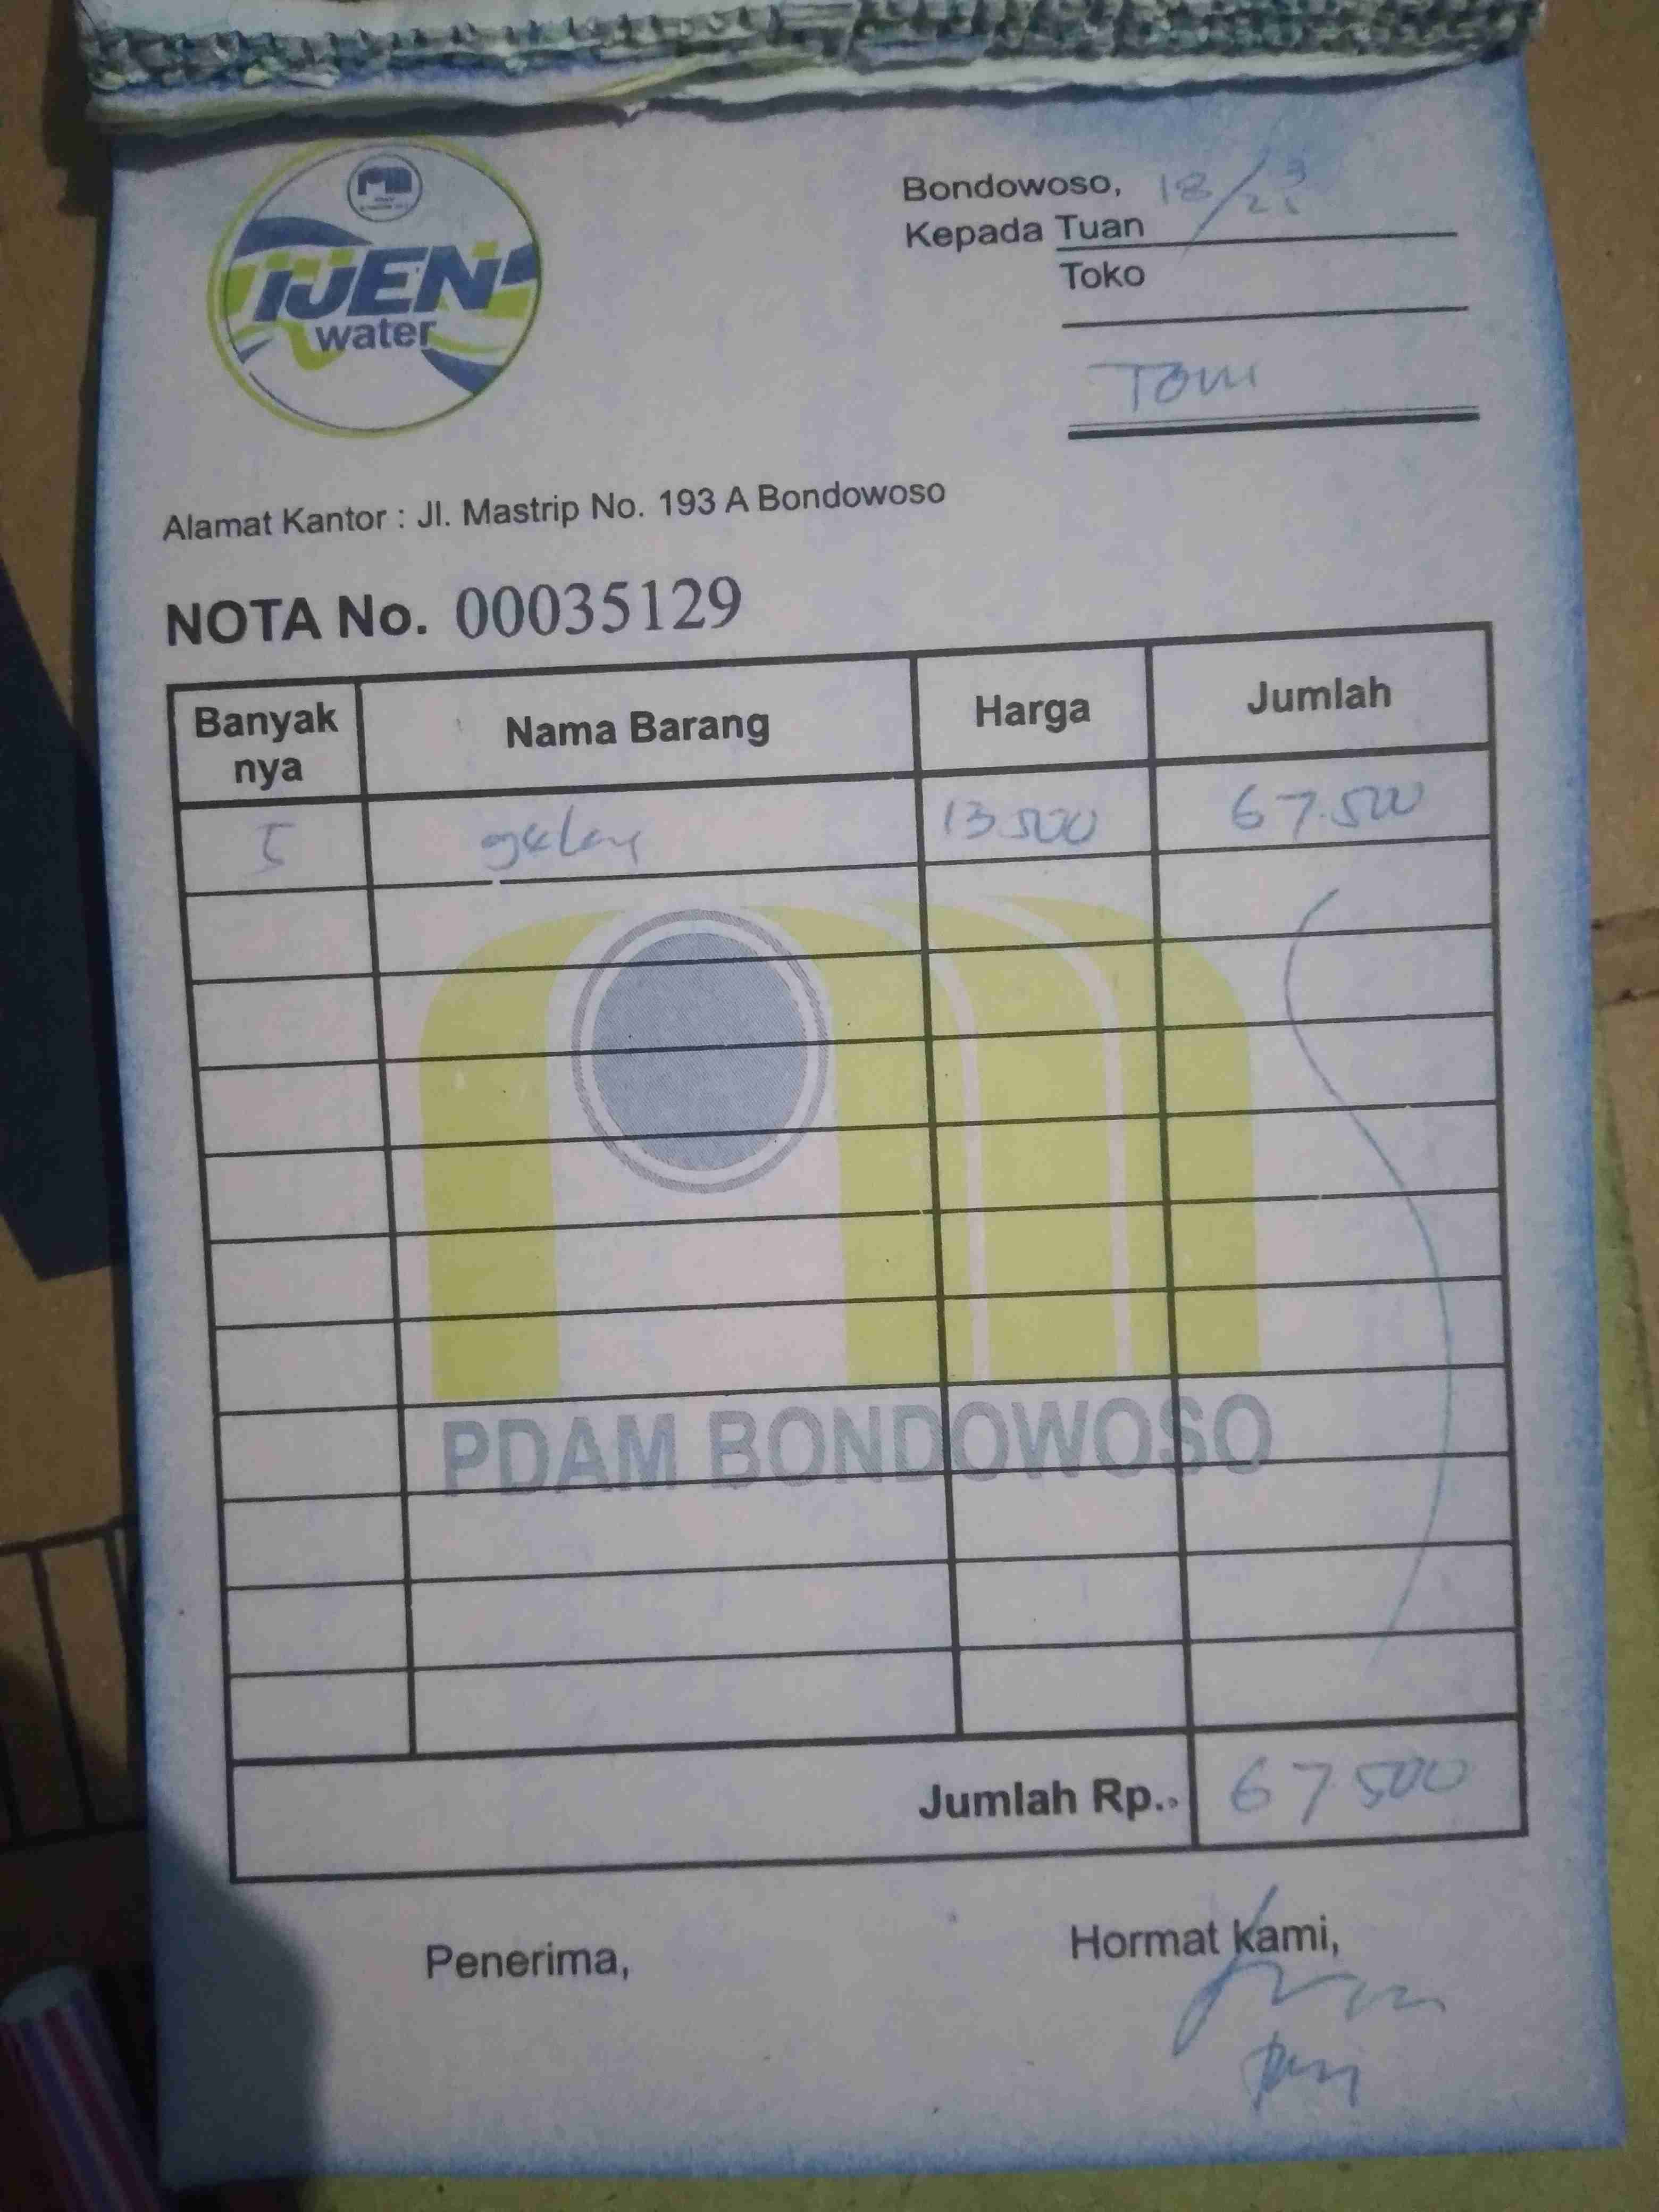 IJEN
water
Bondowoso, 18/3
Kepada Tuan
Toko
Tom
Alamat Kantor : Jl. Mastrip No. 193 A Bondowoso
NOTA No. 00035129
Banyak nya Nama Barang Harga Jumlah
5 galon 13.500 67.500
PDAM BONDOWOSO
Jumlah Rp. 67.500
Penerima,
Hormat kami,